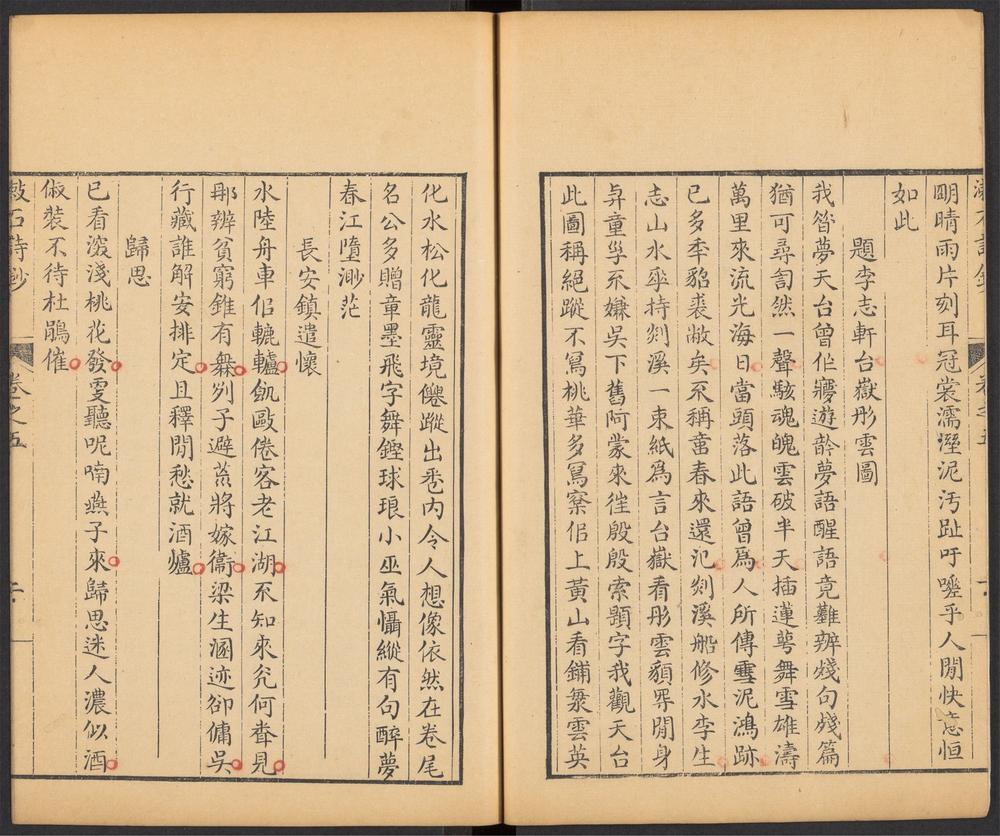 明晴雨片刻耳冠裳濡溼泥汚趾吁嗟乎人閒快意恒
如此
題李志軒台嶽彤雲圖
我昝夢天台曾作寱遊齡夢語醒語竟難辨殘句殘篇
猶可尋訇然一聲駭魂魄雲破半天插蓮萼舞雪雄濤
萬里來流光海日當頭落此語曾爲人所傳雪泥鴻跡
已多秊貂裘敝矣不稱䆫春來還氾剡溪船修水李生
志山水㧱持剡溪一束紙爲言台嶽看彤雲額畀閒身
弄童孚不嫌吳下舊阿蒙來徃殷殷索題字我觀天台
此圖稱絕蹤不寫桃華多寫寀佀上黃山看鋪衆雲英
化水松化龍靈境僊蹤出㤅內令人想像依然在卷尾
名公多贈章墨飛字舞鏗球琅小巫氣懾縱有句醉夢
春江墮渺茫
長安鎮遣懷
水陸舟車佀轆轤飢敺倦客老江湖不知來兊何㫷見
那辨貧窮錐有無列子避䓇將嫁衞梁生溷迹卻傭吳
行藏誰解安排定且釋閒愁就酒壚
歸思
已看㴱淺桃花發雯聽呢喃燕子來歸思迷人濃似酒
俶裝不待杜鵑催
石詩鈔
卷之五